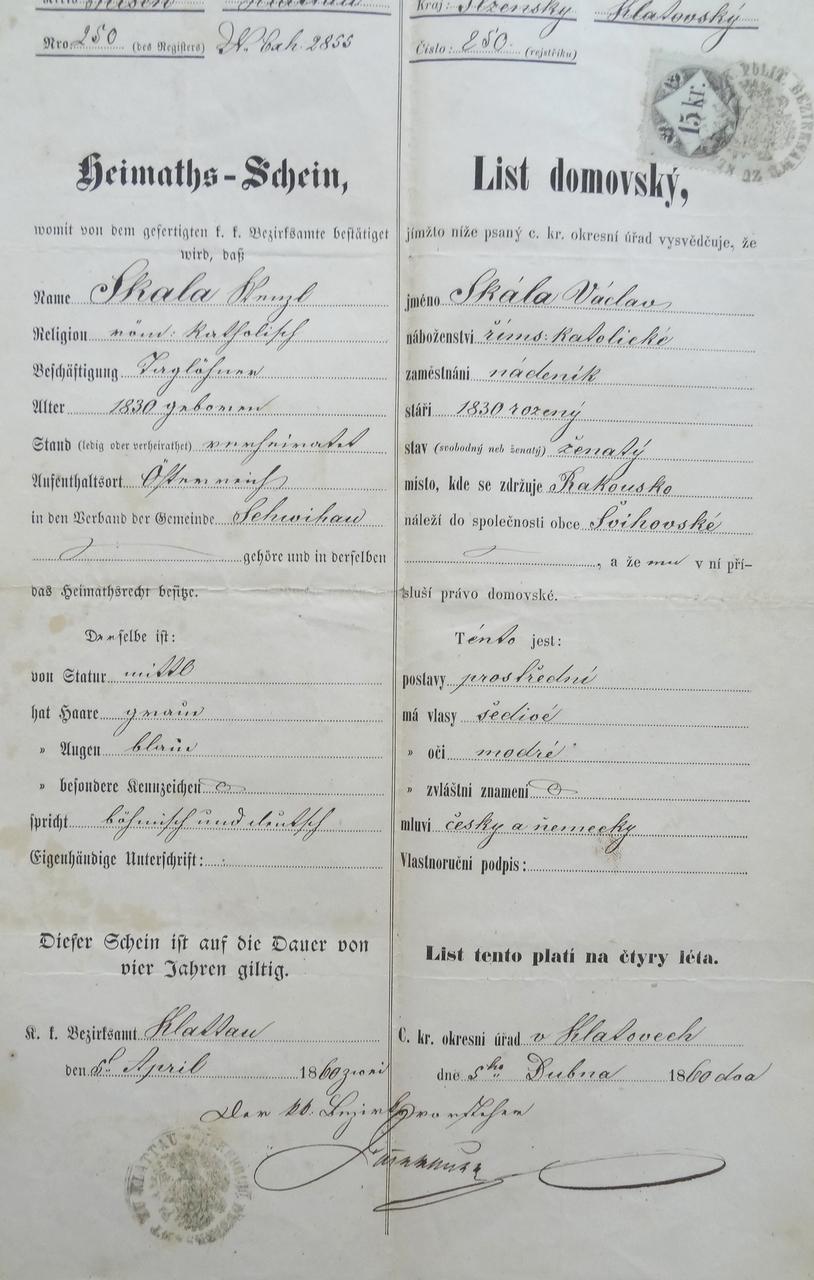 Pilsen Klattau
Nro. 250 (des Registers) N. Exh. 2855
Heimaths-Schein,
womit von dem gefertigten k. k. Bezirksamte bestätiget
wird, daß
Name Skala Wenzl
Religion röm: katholisch
Beschäftigung Taglöhner
Alter 1830 geboren
Stand (ledig oder verheirathet) verheiratet
Aufenthaltsort Österreich
in den Verband der Gemeinde Schwihau
gehöre und in derselben
das Heimathsrecht besitze.
Derselbe ist:
von Statur mittl
hat Haare grau
" Augen blau
" besondere Kennzeichen
spricht böhmisch und deutsch
Eigenhändige Unterschrift:
Dieser Schein ist auf die Dauer von
vier Jahren giltig.
K. k. Bezirksamt Klattau
den 5t April 1860 zwei
Kraj: Plzensky Klatovský
Číslo: 250. (rejstříku)
15 kr.
POLIT. BEZIRKSAMT ZU KL
List domovský,
jímžto níže psaný c. kr. okresní úřad vysvědčuje, že
jméno Skála Václav
náboženství říms: katolické
zaměstnání nádeník
stáří 1830 rozený
stav (svobodný neb ženatý) ženatý
místo, kde se zdržuje Rakousko
náleží do společnosti obce Švihovské
, a že mu v ní pří-
sluší právo domovské.
Tento jest:
postavy prostřední
má vlasy šedivé
" oči modré
" zvláštní znamení
mluví česky a německy
Vlastnoruční podpis:
List tento platí na čtyry léta.
C. kr. okresní úřad v Klatovech
dne 5ho Dubna 1860 dva
Der kk. Bezirksvorsteher
ZU KLATTAU